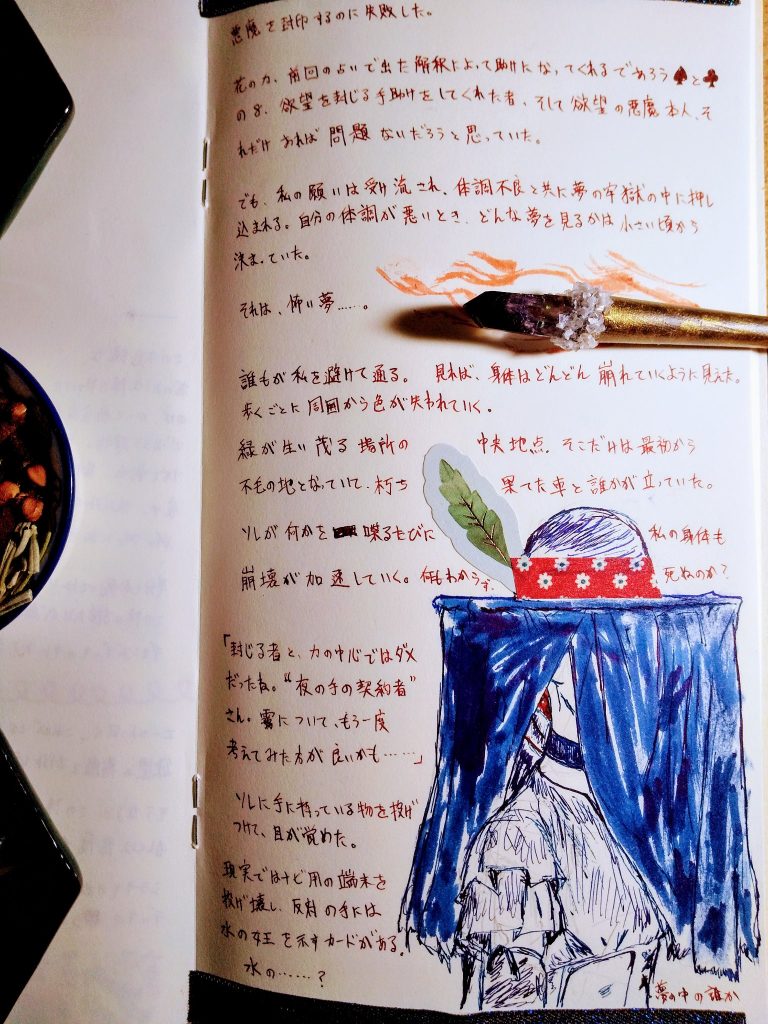 悪魔を封印するのに失敗した。
花の力、前回の占いで出た解釈によって助けになってくれるであろう♠と♣
の8、欲望を封じる手助けをしてくれた者、そして欲望の悪魔本人、そ
れだけあれば問題ないだろうと思っていた。
でも、私の願いは受け流され、体調不良と共に夢の牢獄の中に押し
込まれる。自分の体調が悪いとき、どんな夢を見るかは小さい頃から
決まっていた。
それは、怖い夢……。
誰もが私を避けて通る。 見れば、身体はどんどん崩れていくように見えた。
歩くごとに周囲から色が失われていく。
緑が生い茂る場所の 中央地点。そこだけは最初から
不毛の地となっていて、朽ち 果てた車と誰かが立っていた。
ソレが何かを 喋るたびに 私の身体も
崩壊が加速していく。何もわからず、 死ぬのか?
「封じる者と、力の中心ではダメ
だったね。“夜の手の契約者”
さん。霧について、もう一度
考えてみた方が良いかも……」
ソレに手に持っている物を投げ
つけて、目が覚めた。
現実ではナビ用の端末を
投げ壊し、反対の手には
水の女王を示すカードがある。
水の……?
夢の中の誰か